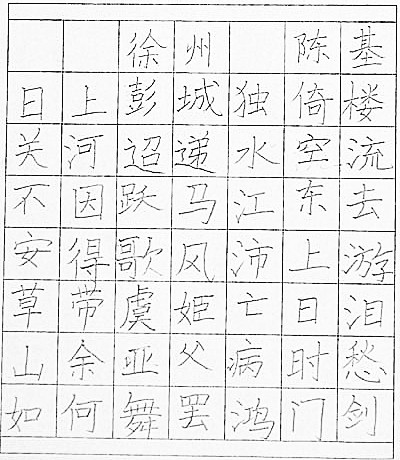 徐州 陈基
日上彭城独倚楼
关河迢递水空流
不因跃马江东去
安得歌风沛上游
草带虞姬亡日泪
山余亚父病时愁
如何舞罢鸿门剑